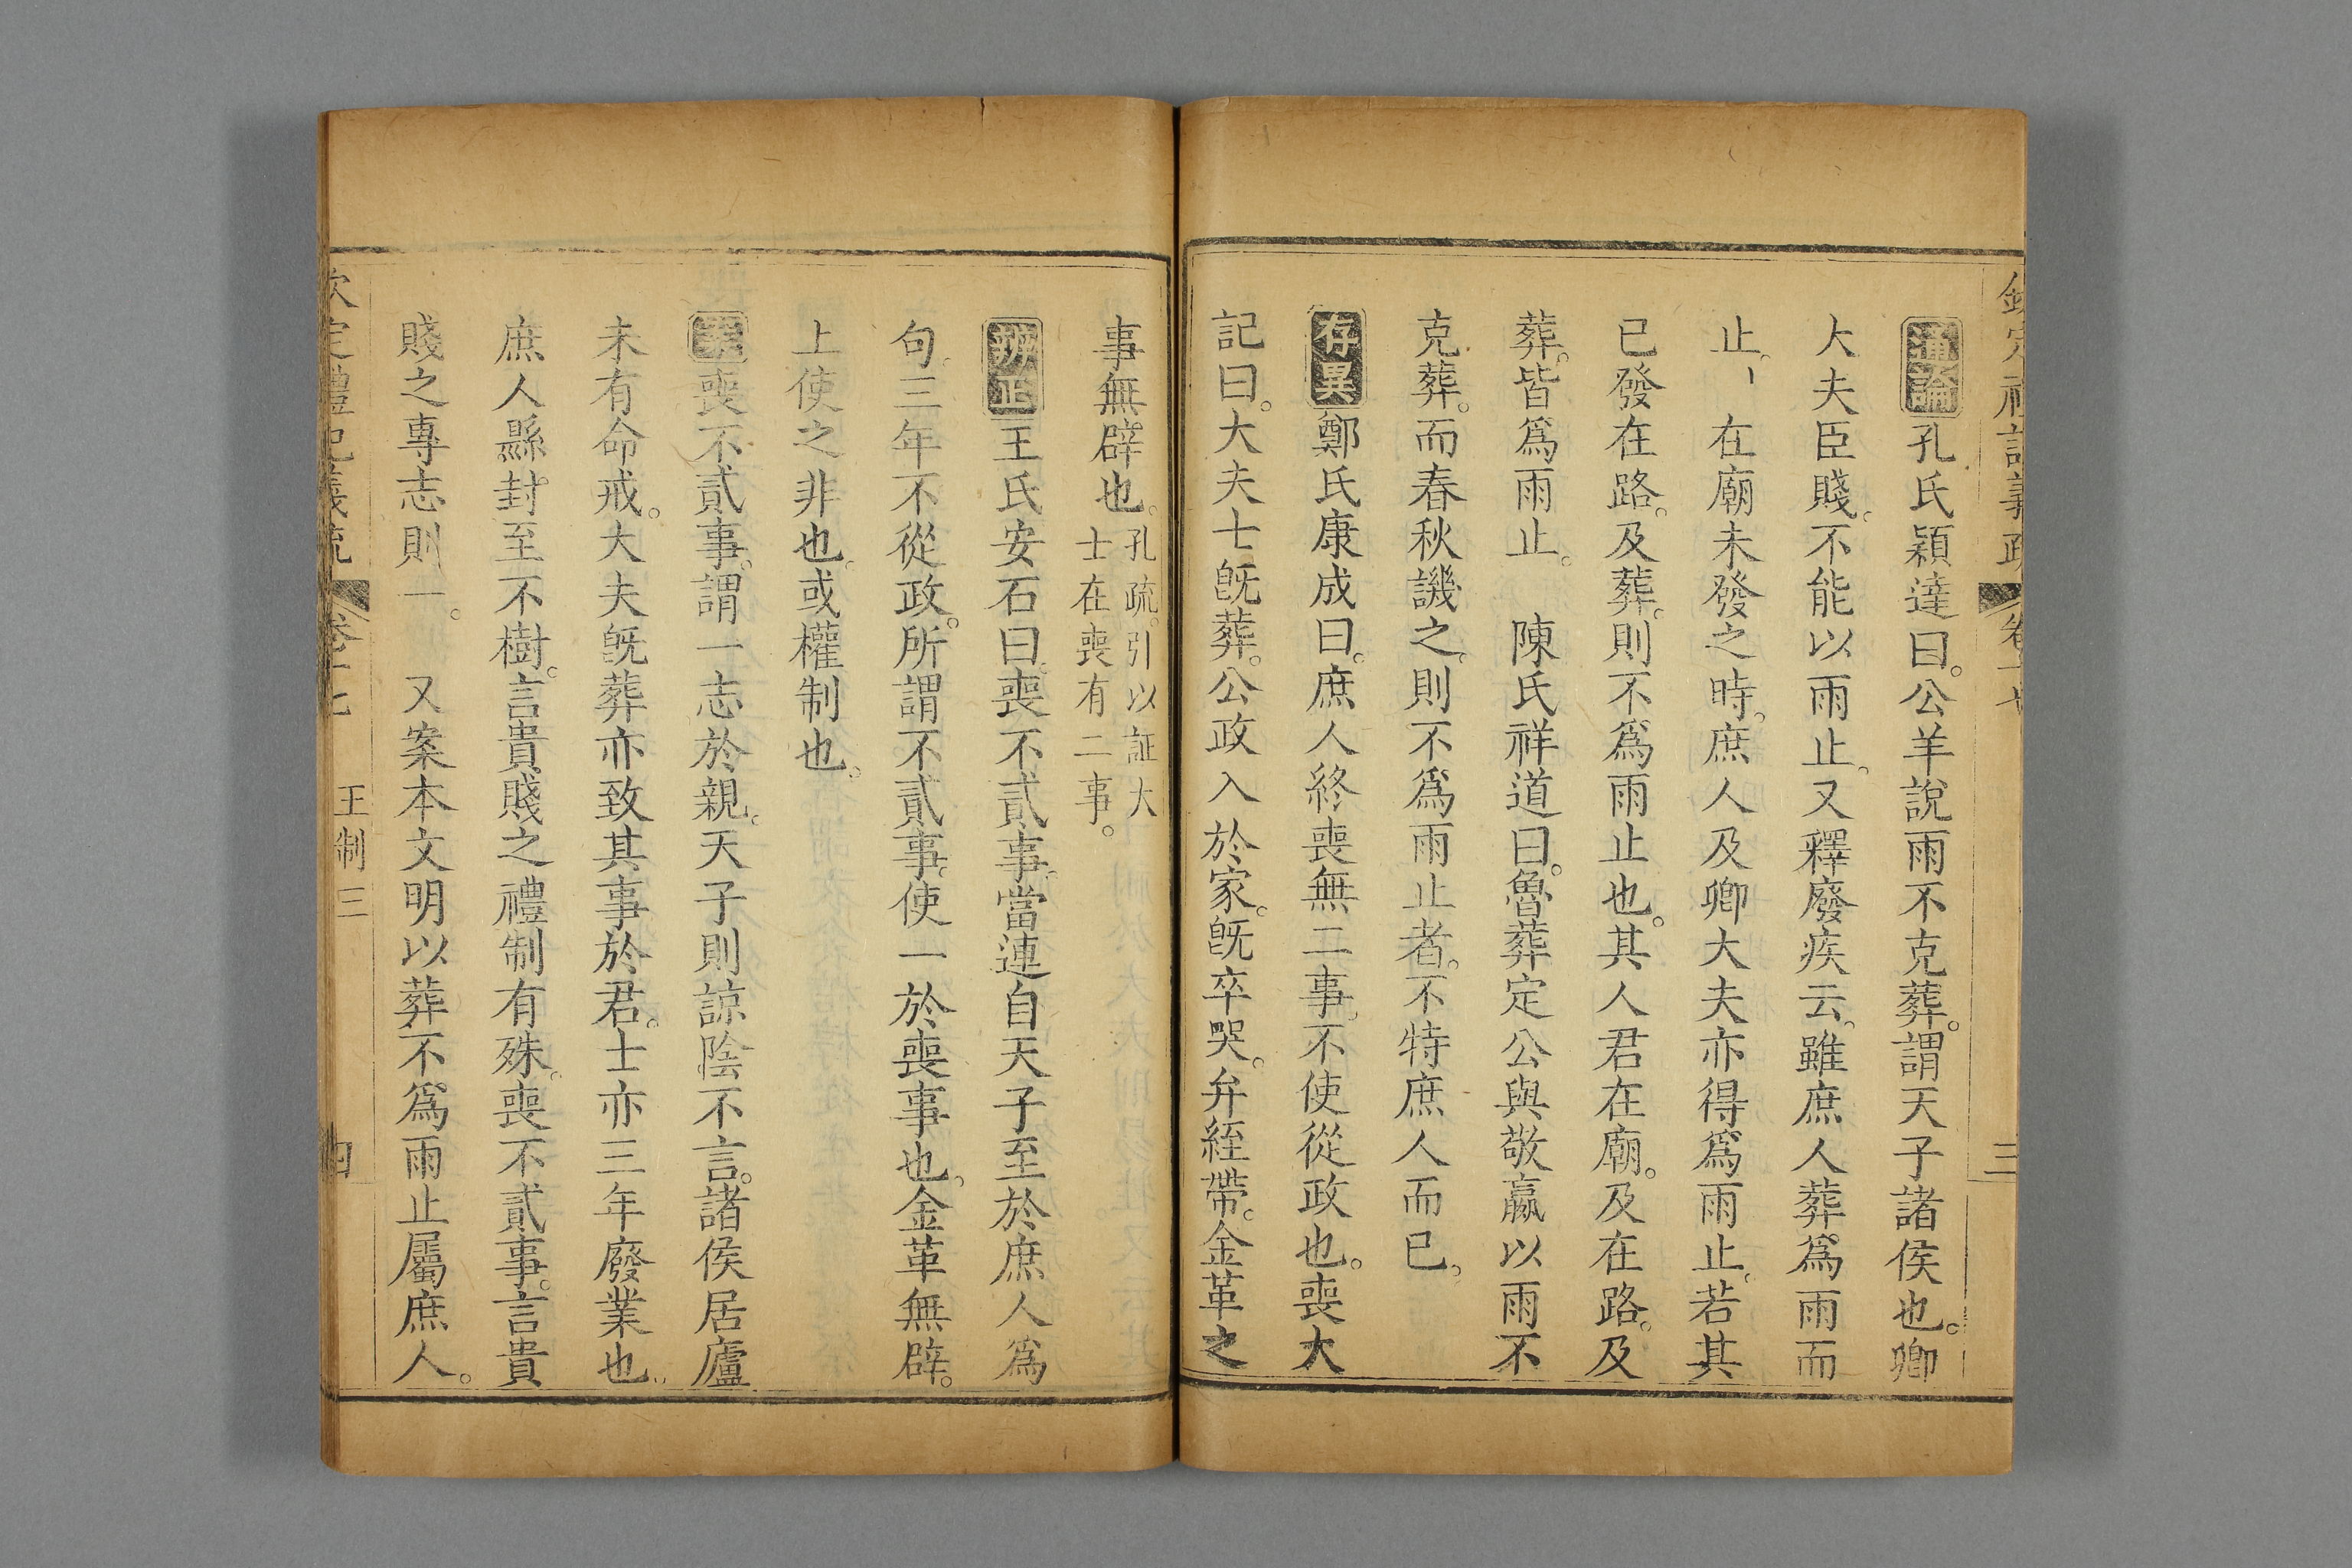 通論孔氏穎達曰。公羊說雨不克葬。謂天子諸侯也。卿
大夫臣賤。不能以雨止。又釋廢疾云。雖庶人葬。爲雨而
止、在廟未發之時。庶人及卿大夫亦得爲雨止。若其
已發在路。及葬。則不爲雨止也。其人君在廟。及在路。及
葬。皆爲雨止。 陳氏祥道曰。魯葬定公與敬嬴以雨不
克葬。而春秋譏之。則不爲雨止者。不特庶人而已。
存異鄭氏康成曰。庶人終喪無二事。不使從政也。喪大
記曰。大夫士旣葬。公政入於家。旣卒哭。弁絰帶。金革之
事無辟也。孔疏。引以証大
士在喪有二事。
辨正王氏安石曰。喪不貳事。當連自天子至於庶人爲
句。三年不從政。所謂不貳事。使一於喪事也。金革無辟。
上使之非也。或權制也。
案喪不貳事。謂一志於親。天子則諒陰不言。諸侯居廬
未有命戒。大夫旣葬亦致其事於君。士亦三年廢業也。
庶人縣封至不樹。言貴賤之禮制有殊。喪不貳事。言貴
賤之專志則一。 又案本文明以葬不爲雨止屬庶人。
欽定禮記義疏 卷十七 王制三 四